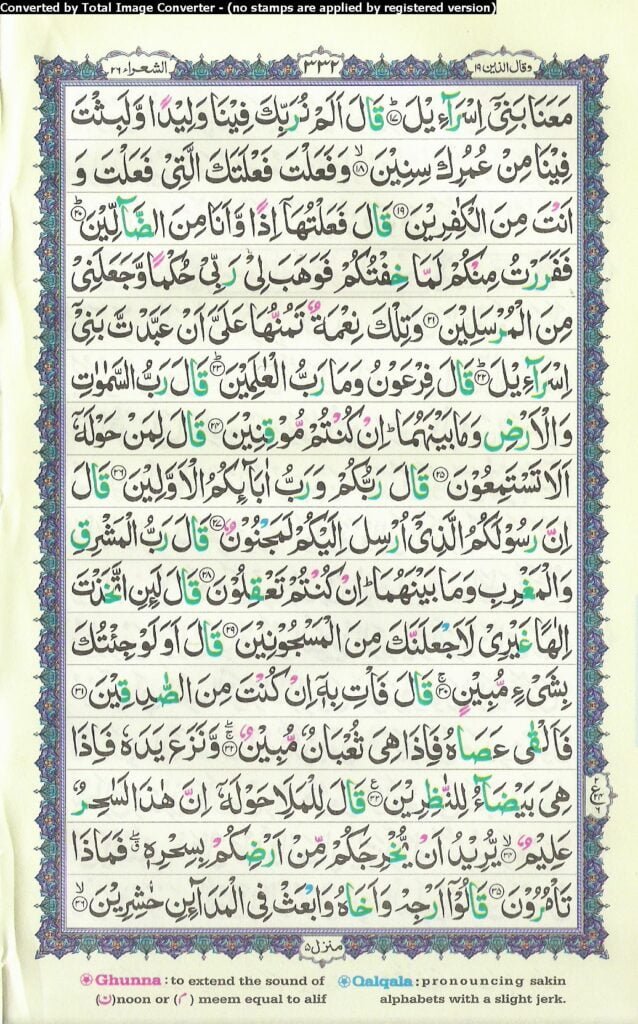 Converted by Total Image Converter - (no stamps are applied by registered version)
وقال الذين ١٩
٣٣٢
الشعراء ٢٦
مَعَنَا بَنِیْۤ اِسْرَآءِیْلَ ۞۱۷ قَالَ اَلَمْ نُرَبِّكَ فِیْنَا وَلِیْدًا وَّلَبِثْتَ
فِیْنَا مِنْ عُمُرِكَ سِنِیْنَ ۞۱۸ۙ وَفَعَلْتَ فَعْلَتَكَ الَّتِیْ فَعَلْتَ وَ
اَنْتَ مِنَ الْكٰفِرِیْنَ ۞۱۹ قَالَ فَعَلْتُهَاۤ اِذًا وَّاَنَا مِنَ الضَّآلِّیْنَ ۞۲۰ؕ
فَفَرَرْتُ مِنْكُمْ لَمَّا خِفْتُكُمْ فَوَهَبَ لِیْ رَبِّیْ حُكْمًا وَّجَعَلَنِیْ
مِنَ الْمُرْسَلِیْنَ ۞۲۱ وَتِلْكَ نِعْمَةٌ تَمُنُّهَا عَلَیَّ اَنْ عَبَّدْتَّ بَنِیْۤ
اِسْرَآءِیْلَ ۞۲۲ؕ قَالَ فِرْعَوْنُ وَمَا رَبُّ الْعٰلَمِیْنَ ۞۲۳ؕ قَالَ رَبُّ السَّمٰوٰتِ
وَالْاَرْضِ وَمَا بَیْنَهُمَا ؕ اِنْ كُنْتُمْ مُّوْقِنِیْنَ ۞۲۴ قَالَ لِمَنْ حَوْلَهٗۤ
اَلَا تَسْتَمِعُوْنَ ۞۲۵ قَالَ رَبُّكُمْ وَرَبُّ اٰبَآئِكُمُ الْاَوَّلِیْنَ ۞۲۶ قَالَ
اِنَّ رَسُوْلَكُمُ الَّذِیْۤ اُرْسِلَ اِلَیْكُمْ لَمَجْنُوْنٌ ۞۲۷ قَالَ رَبُّ الْمَشْرِقِ
وَالْمَغْرِبِ وَمَا بَیْنَهُمَا ؕ اِنْ كُنْتُمْ تَعْقِلُوْنَ ۞۲۸ قَالَ لَئِنِ اتَّخَذْتَ
اِلٰهًا غَیْرِیْ لَاَجْعَلَنَّكَ مِنَ الْمَسْجُوْنِیْنَ ۞۲۹ قَالَ اَوَلَوْ جِئْتُكَ
بِشَیْءٍ مُّبِیْنٍ ۞۳۰ۚ قَالَ فَاْتِ بِهٖۤ اِنْ كُنْتَ مِنَ الصّٰدِقِیْنَ ۞۳۱
فَاَلْقٰی عَصَاهُ فَاِذَا هِیَ ثُعْبَانٌ مُّبِیْنٌ ۞۳۲ۚۖ وَّنَزَعَ یَدَهٗ فَاِذَا
هِیَ بَیْضَآءُ لِلنّٰظِرِیْنَ ۞۳۳ع قَالَ لِلْمَلَاِ حَوْلَهٗۤ اِنَّ هٰذَا لَسٰحِرٌ
عَلِیْمٌ ۞۳۴ۙ یُّرِیْدُ اَنْ یُّخْرِجَكُمْ مِّنْ اَرْضِكُمْ بِسِحْرِهٖ ۖۗ فَمَاذَا
تَاْمُرُوْنَ ۞۳۵ قَالُوْۤا اَرْجِهْ وَاَخَاهُ وَابْعَثْ فِی الْمَدَآئِنِ حٰشِرِیْنَ ۞۳۶ۙ
منزل ۵
Ghunna : to extend the sound of (ن) noon or (م) meem equal to alif
Qalqala : pronouncing sakin alphabets with a slight jerk.